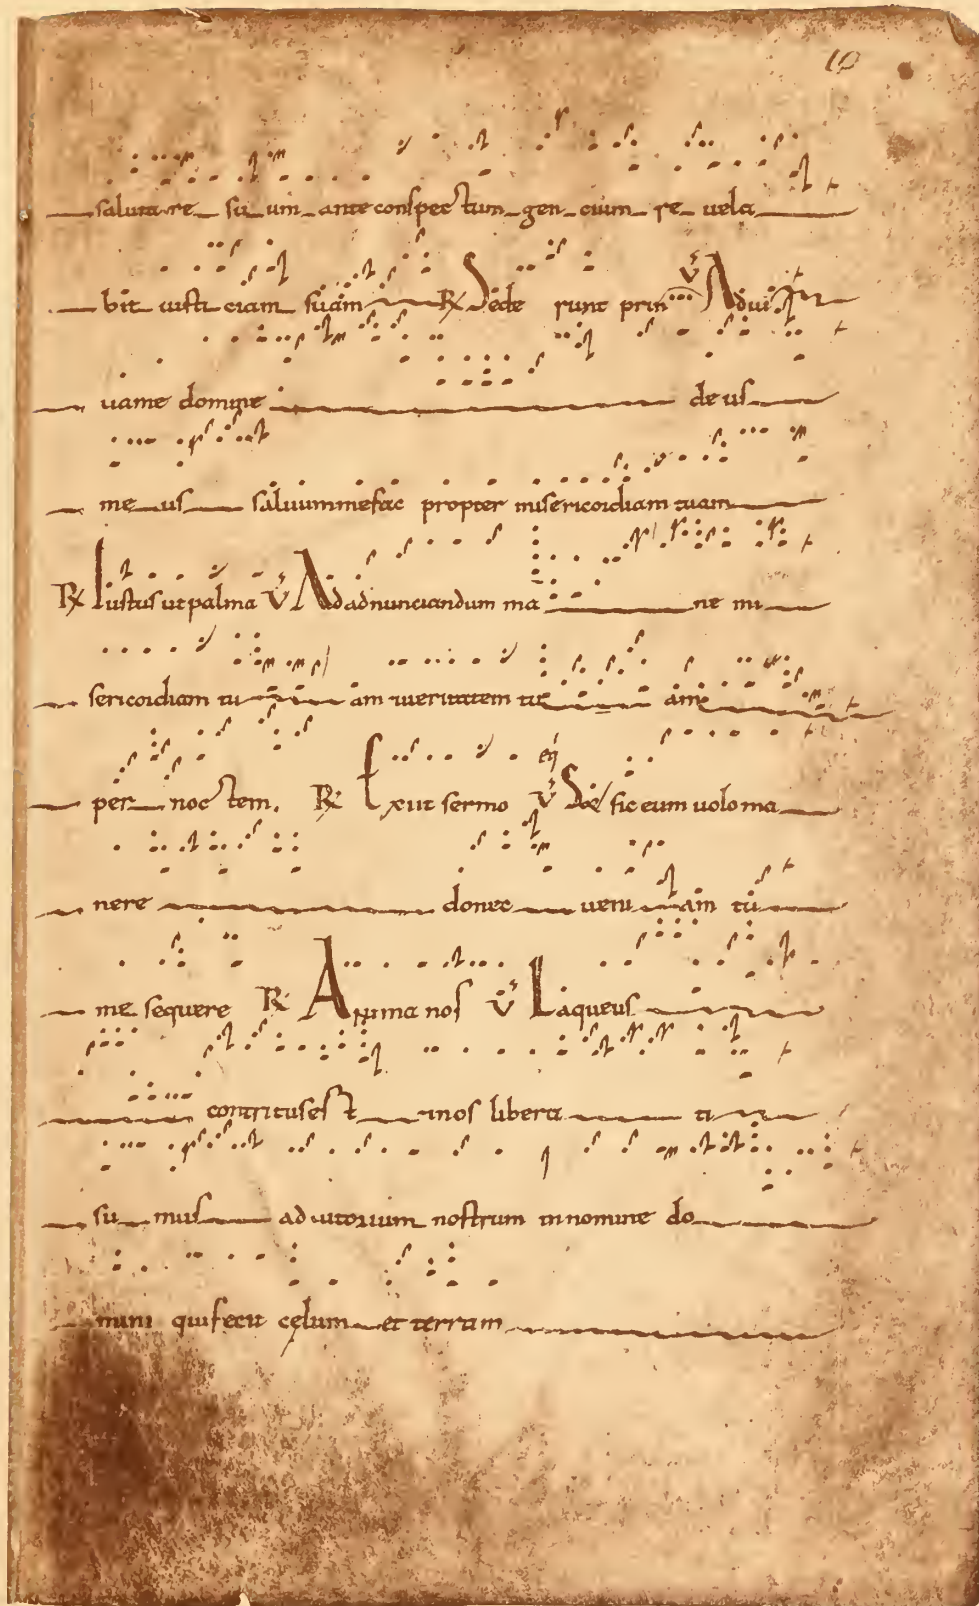 10
salutare su um ante conspec tum gen cium re uela
bit iusti ciam suam R Sede runt prin V Adiu
uame domine de us
me us saluummefac propter misericordiam tuam
R Iustus ut palma V Ad adnunciandum ma ne mi
sericordiam tu am & ueritatem tu am
per noc tem. R Exiit sermo V Sed sic eum uolo ma
nere donec ueni am tu
me sequere R Anima nos V Laqueus
contritus est & nos libera ti
su mus adiutorium nostrum in nomine do
mini qui fecit cęlum et terram